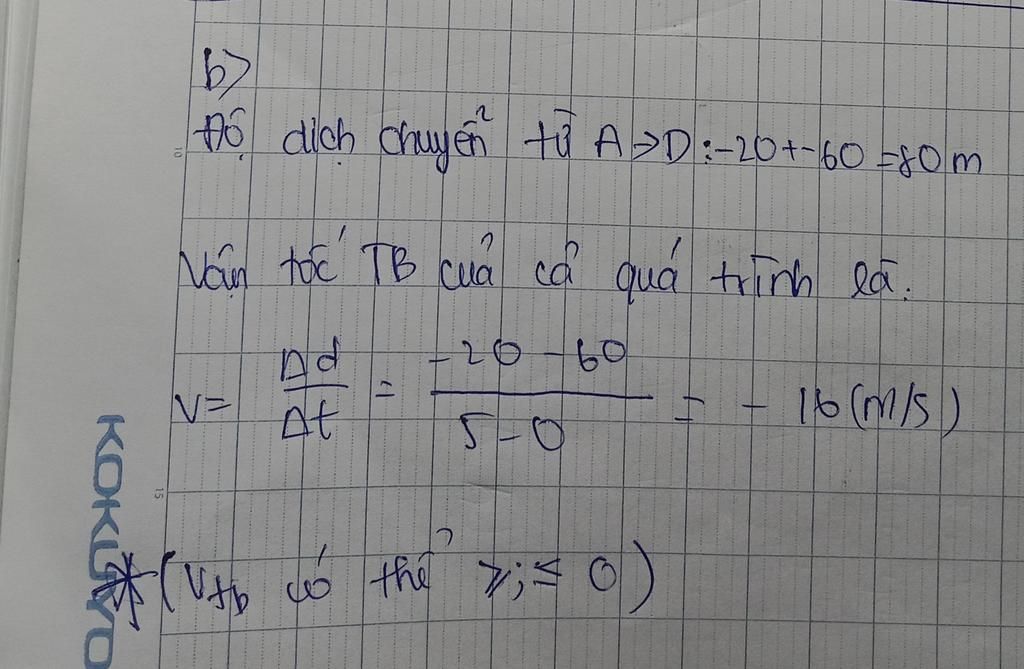 b>
Độ dịch chuyển từ A->D: -20+-60=80m
Vận tốc TB của cả quá trình là:
v= Δd/Δt = -20-60/5-0 = - 16 (m/s)
* (Vtb có thể ≥;≤ 0)
10
15
KOKUYO